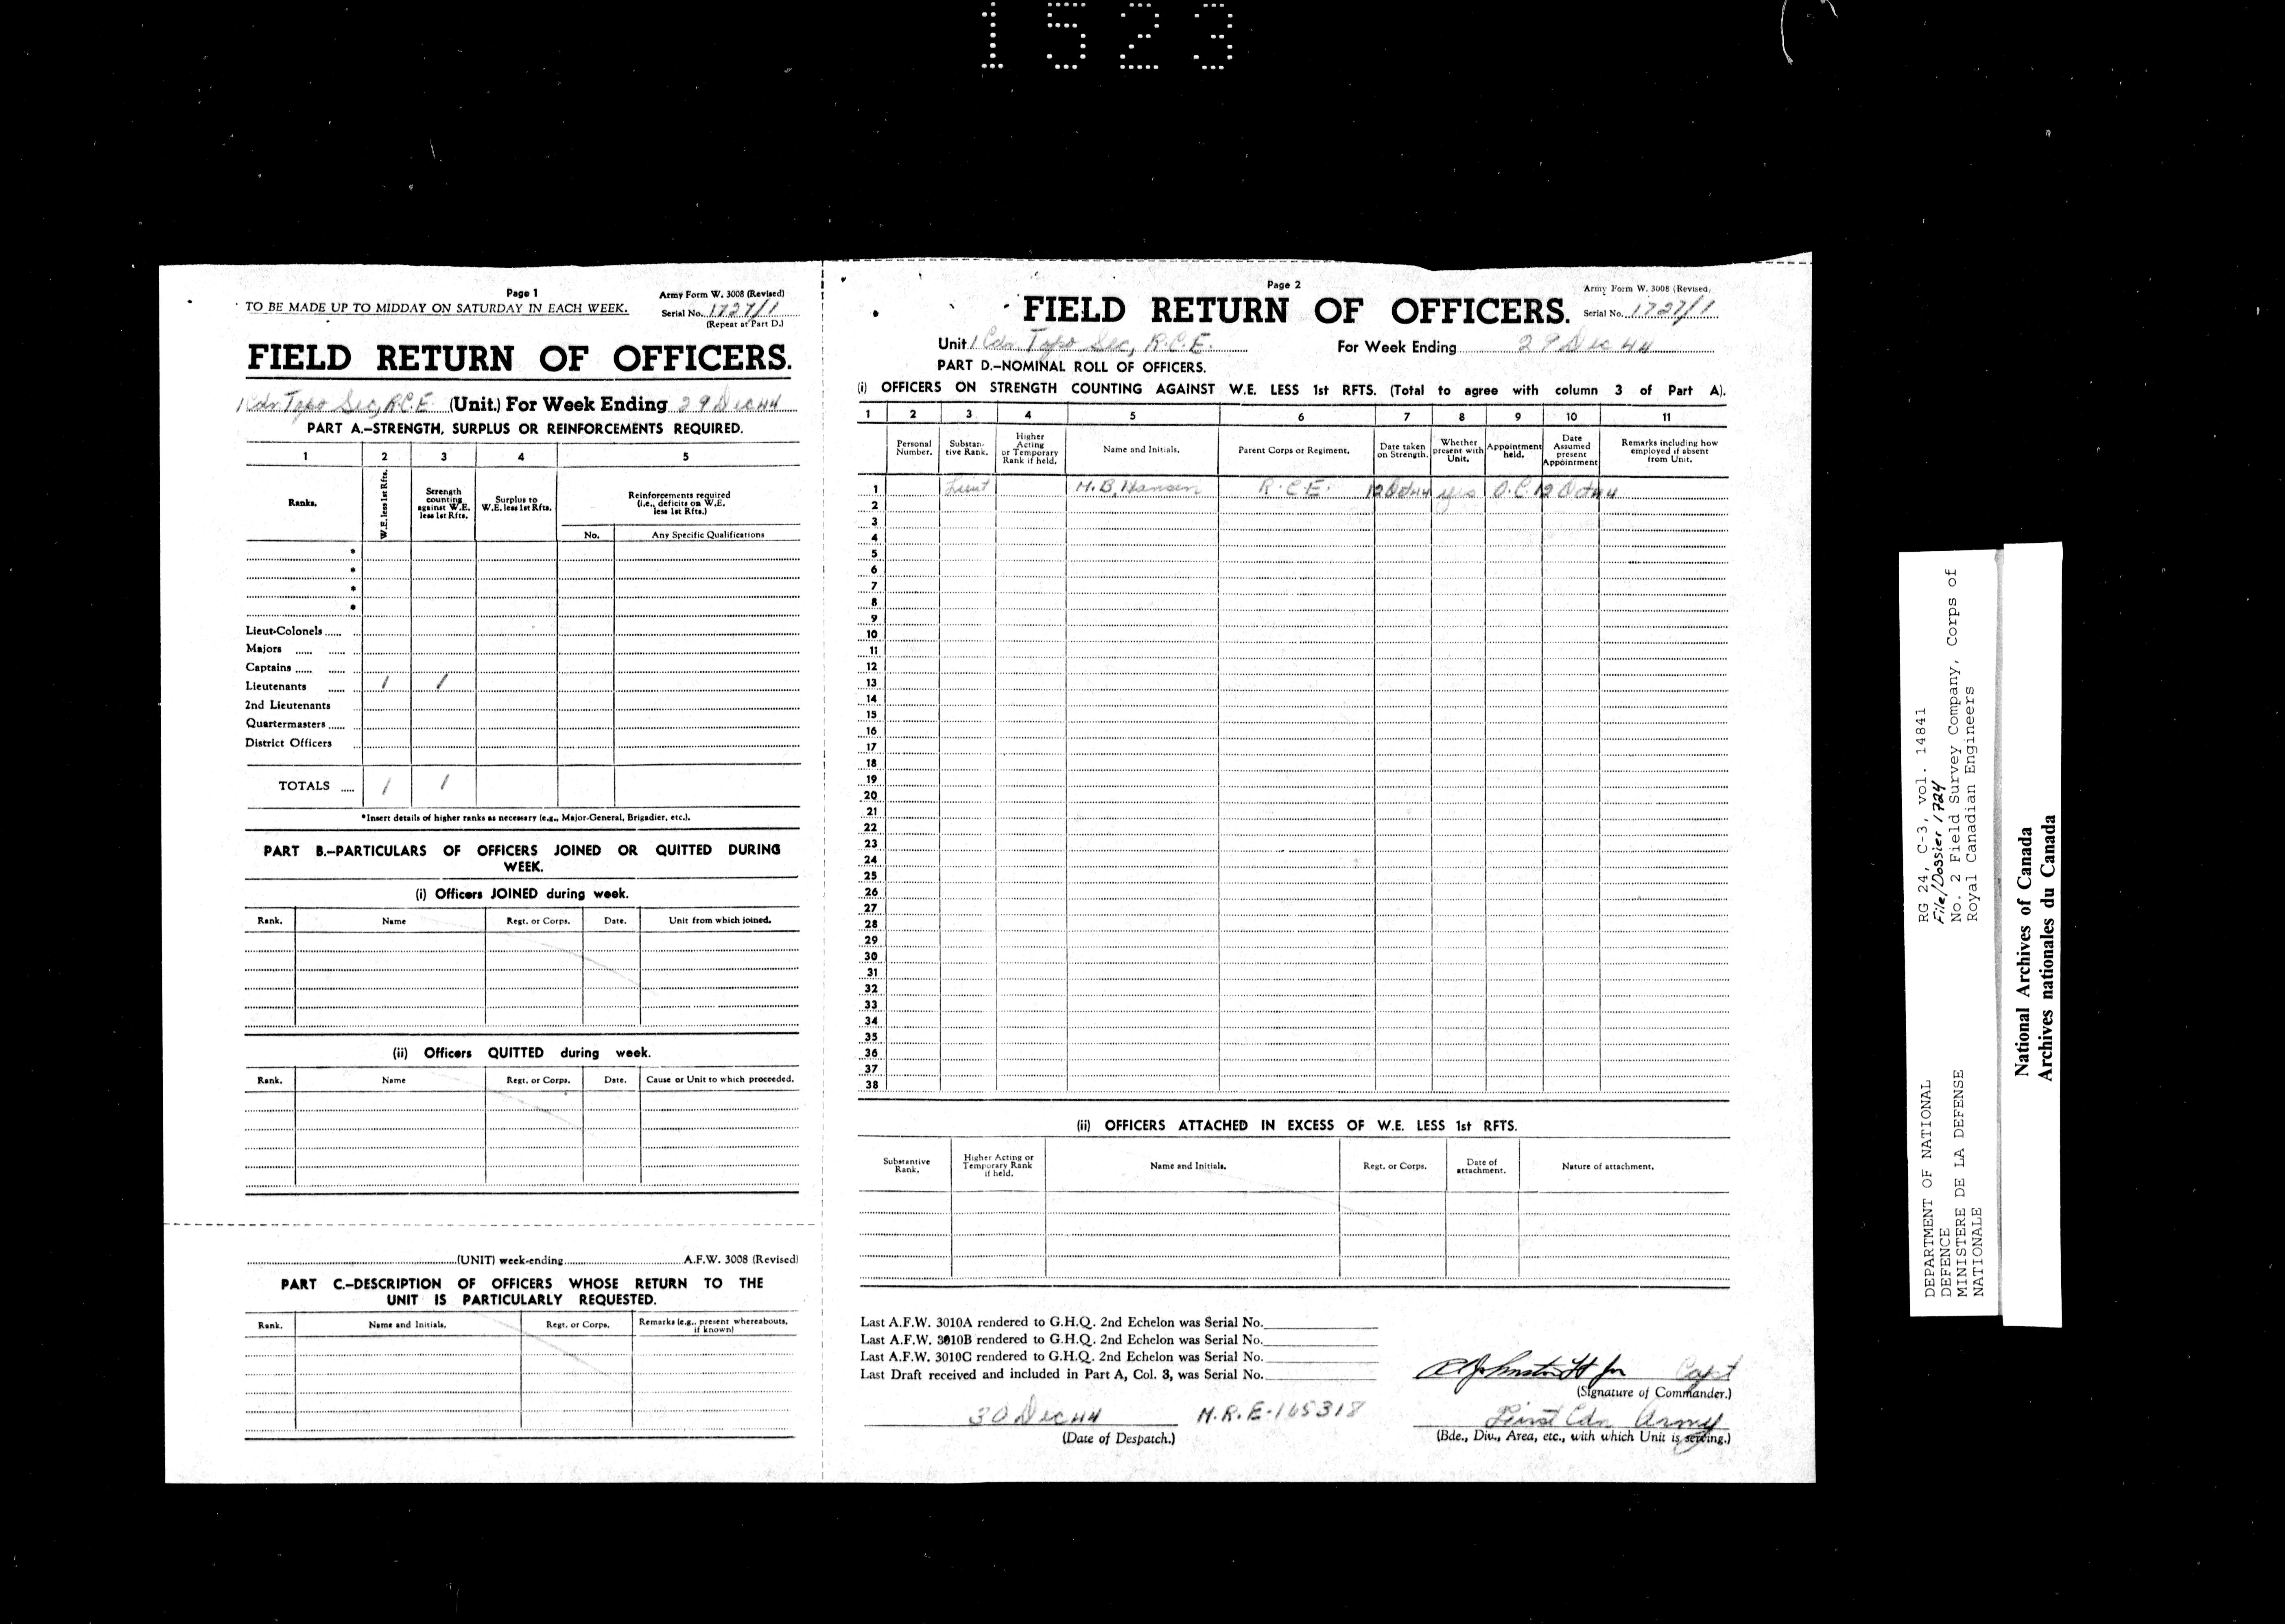 1523
Page 1
TO BE MADE UP TO MIDDAY ON SATURDAY IN EACH WEEK.
Army Form W. 3008 (Revised)
Serial No. 1727/1
(Repeat at Part D.)
FIELD RETURN OF OFFICERS.
1 Cdn Topo Sec, R.C.E. (Unit.) For Week Ending 29 Dec 44
PART A.–STRENGTH, SURPLUS OR REINFORCEMENTS REQUIRED.
1 2 3 4 5
Ranks.
W.E. less 1st Rfts.
Strength counting against W.E. less 1st Rfts.
Surplus to W.E. less 1st Rfts.
Reinforcements required (i.e., deficits on W.E. less 1st Rfts.)
No. Any Specific Qualifications
*
*
*
*
Lieut-Colonels
Majors
Captains
Lieutenants 1 1
2nd Lieutenants
Quartermasters
District Officers
TOTALS 1 1
*Insert details of higher ranks as necessary (e.g., Major-General, Brigadier, etc.).
PART B.–PARTICULARS OF OFFICERS JOINED OR QUITTED DURING
WEEK.
(i) Officers JOINED during week.
Rank. Name Regt. or Corps. Date. Unit from which joined.
(ii) Officers QUITTED during week.
Rank. Name Regt. or Corps. Date. Cause or Unit to which proceeded.
(UNIT) week-ending A.F.W. 3008 (Revised)
PART C.–DESCRIPTION OF OFFICERS WHOSE RETURN TO THE
UNIT IS PARTICULARLY REQUESTED.
Rank. Name and Initials. Regt. or Corps. Remarks (e.g., present whereabouts, if known)
Page 2
Army Form W. 3008 (Revised)
FIELD RETURN OF OFFICERS.
Serial No. 1727/1
Unit 1 Cdn Topo Sec, R.C.E. For Week Ending 29 Dec 44
PART D.–NOMINAL ROLL OF OFFICERS.
(i) OFFICERS ON STRENGTH COUNTING AGAINST W.E. LESS 1st RFTS. (Total to agree with column 3 of Part A).
1 2 3 4 5 6 7 8 9 10 11
Personal Number.
Substantive Rank.
Higher Acting or Temporary Rank if held.
Name and Initials.
Parent Corps or Regiment.
Date taken on Strength.
Whether present with Unit.
Appointment held.
Date Assumed present Appointment
Remarks including how employed if absent from Unit.
1 Lieut H.B. Hansen R.C.E. 12 Oct 44 yes O.C. 12 Oct 44
2
3
4
5
6
7
8
9
10
11
12
13
14
15
16
17
18
19
20
21
22
23
24
25
26
27
28
29
30
31
32
33
34
35
36
37
38
(ii) OFFICERS ATTACHED IN EXCESS OF W.E. LESS 1st RFTS.
Substantive Rank.
Higher Acting or Temporary Rank if held.
Name and Initials.
Regt. or Corps.
Date of attachment.
Nature of attachment.
Last A.F.W. 3010A rendered to G.H.Q. 2nd Echelon was Serial No.
Last A.F.W. 3010B rendered to G.H.Q. 2nd Echelon was Serial No.
Last A.F.W. 3010C rendered to G.H.Q. 2nd Echelon was Serial No.
Last Draft received and included in Part A, Col. 3, was Serial No.
Johnston Lt for Capt
(Signature of Commander.)
30 Dec 44 M.R.E-165318 First Cdn Army
(Date of Despatch.) (Bde., Div., Area, etc., with which Unit is serving.)
DEPARTMENT OF NATIONAL
DEFENCE
MINISTERE DE LA DEFENSE
NATIONALE
RG 24, C-3, vol. 14841
File/Dossier 1724
No. 2 Field Survey Company, Corps of
Royal Canadian Engineers
National Archives of Canada
Archives nationales du Canada